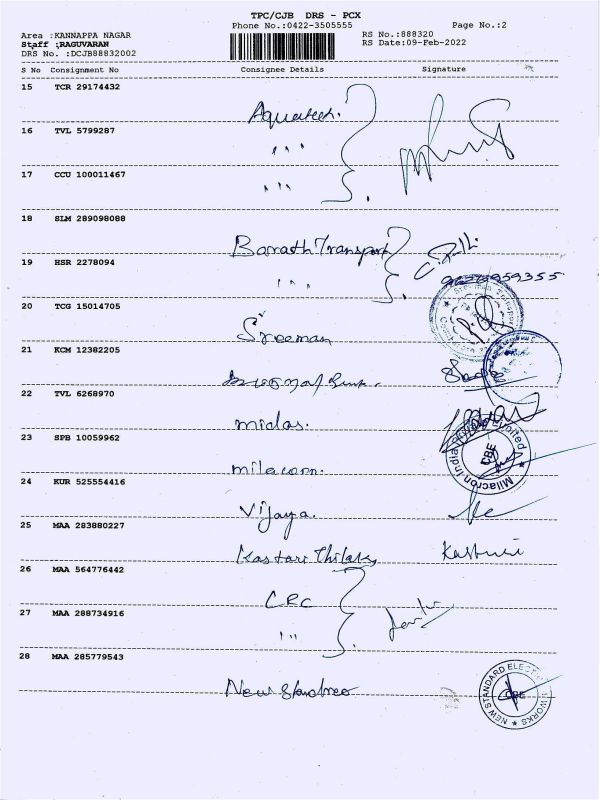 TPC/CJB DRS - PCX
Phone No.:0422-3505555 Page No.:2
Area :KANNAPPA NAGAR RS No.:888320
Staff :RAGUVARAN RS Date:09-Feb-2022
DRS No. :DCJB88832002
S No Consignment No Consignee Details Signature
15 TCR 29174432
Aquatech.
16 TVL 5799287
" "
17 CCU 100011467
" "
18 SLM 289098088
Barath Transport
19 HSR 2278094
" "
20 TCG 15014705
Sreeman
21 KCM 12382205
22 TVL 6268970
midas.
23 SPB 10059962
milacorn.
Milacron India Limited
CBE
24 KUR 525554416
Vijaya.
25 MAA 283880227
Kasturi Thilak Kasturi
26 MAA 564776442
CRC
27 MAA 288734916
" "
28 MAA 285779543
New Standred
NEW STANDARD ELECTRIC WORKS
CBE